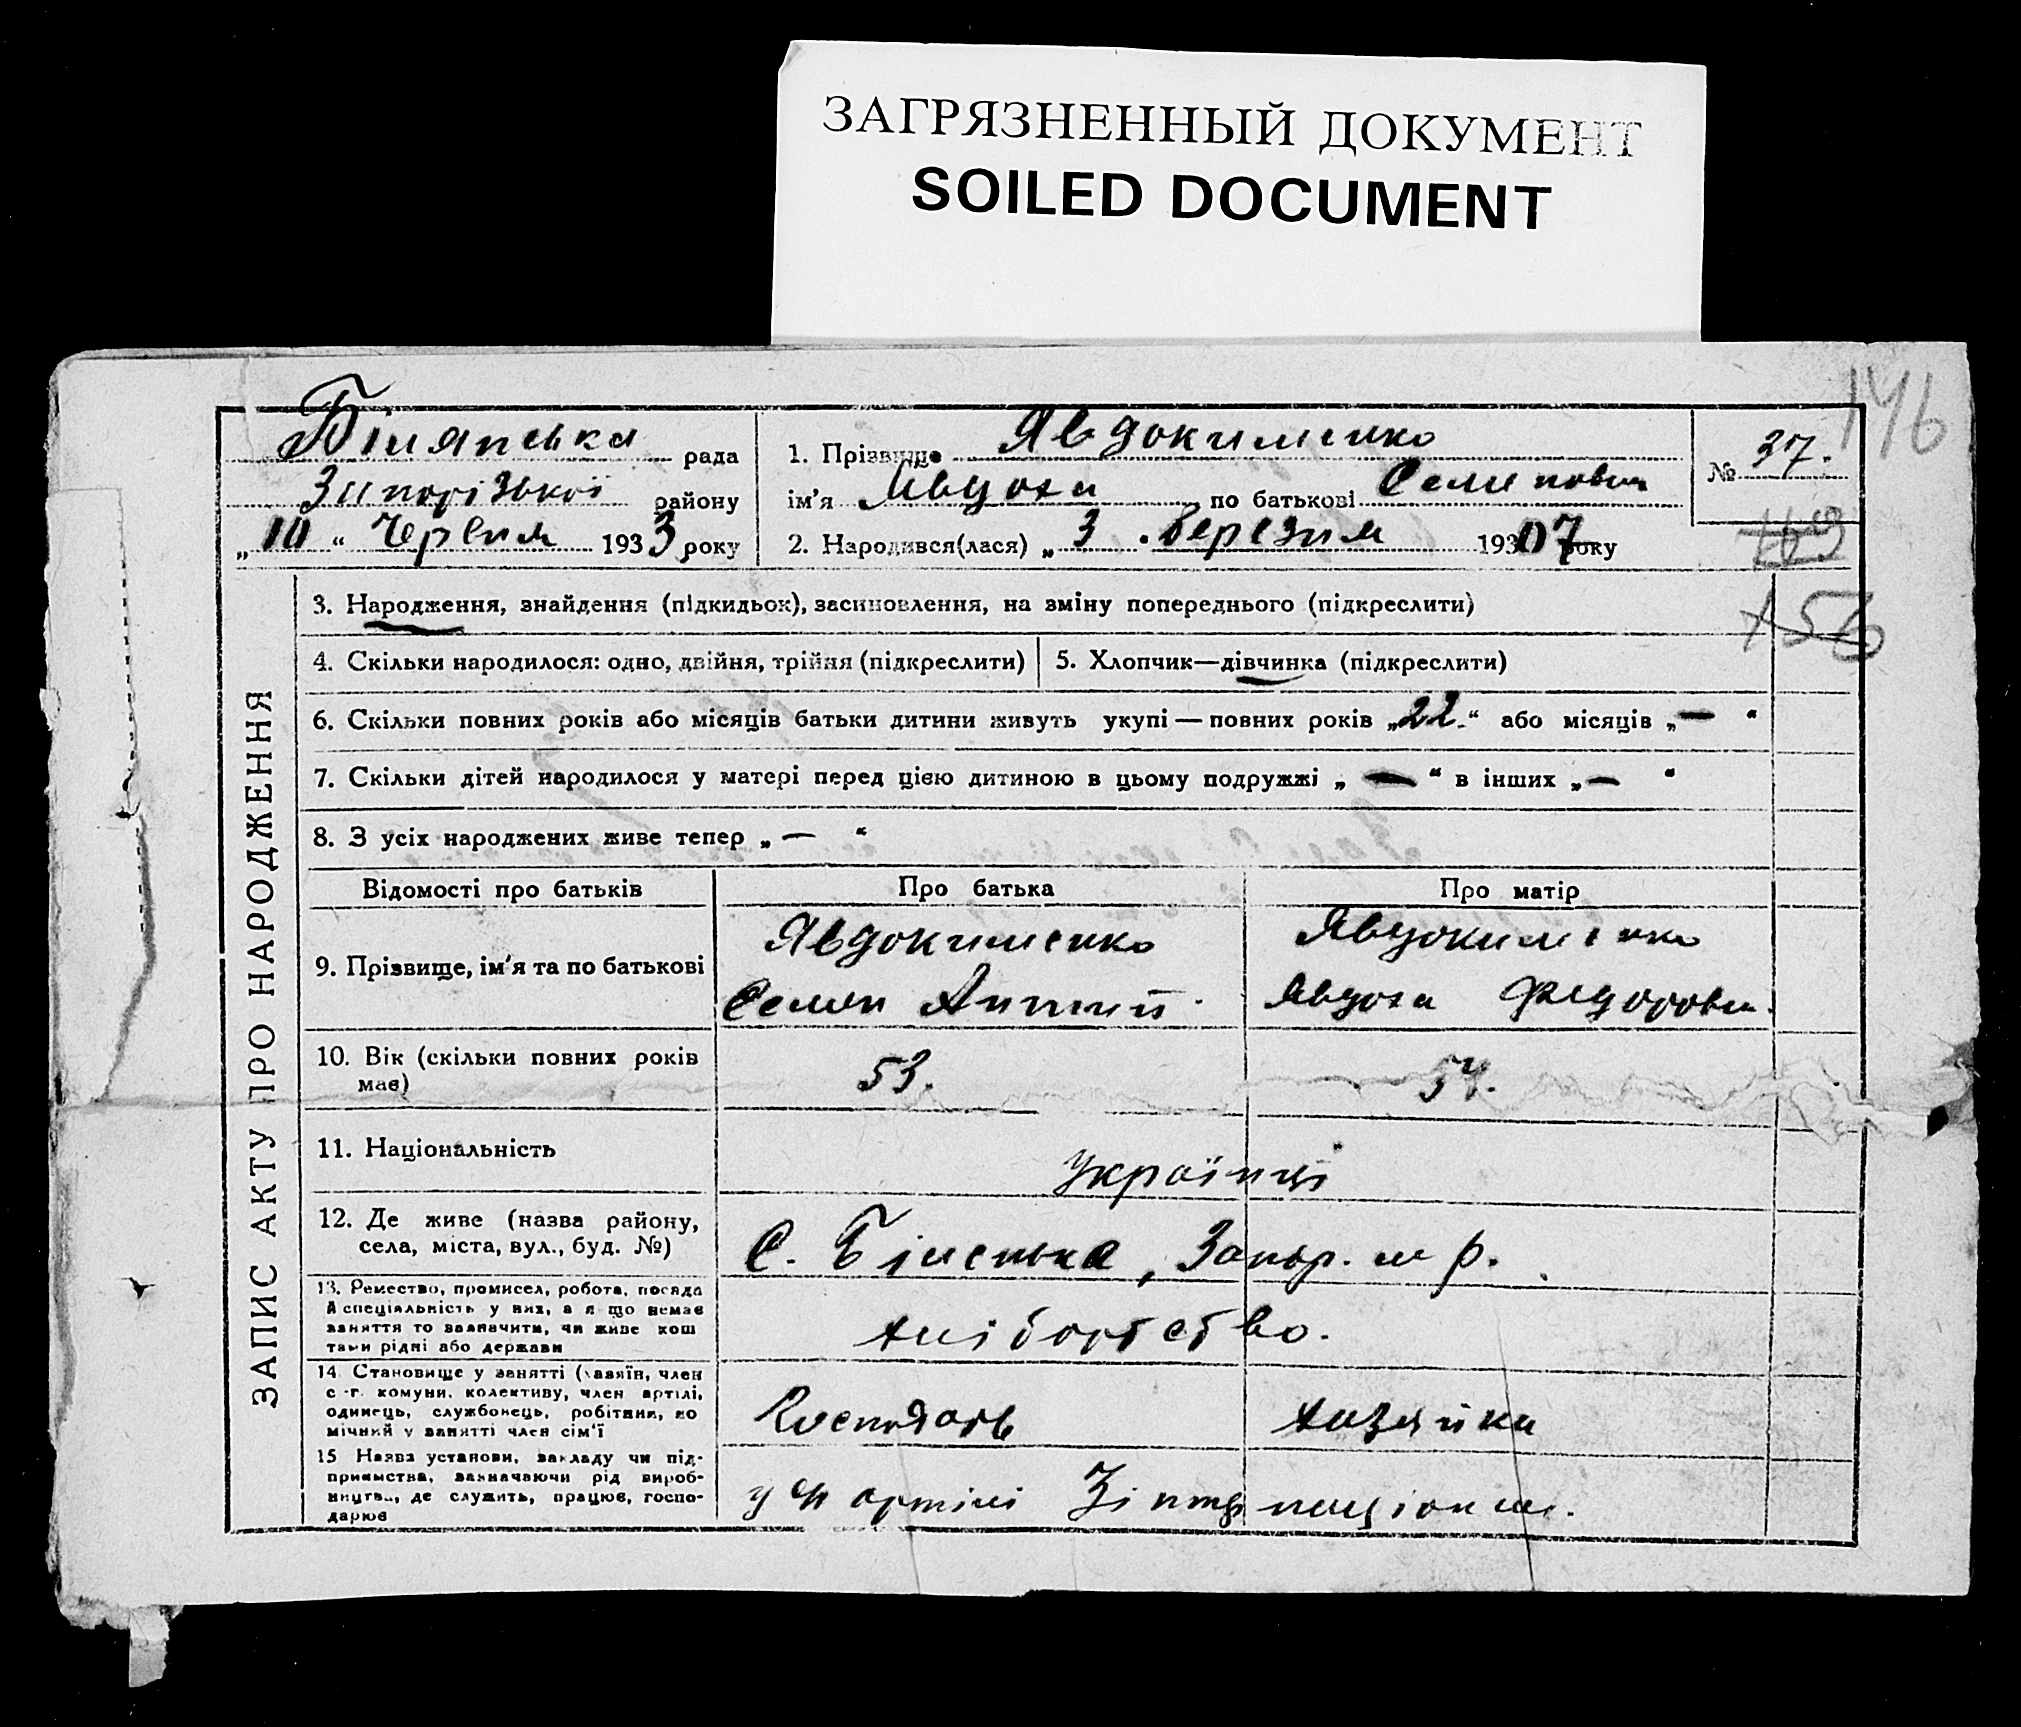 ЗАГРЯЗНЕННЫЙ ДОКУМЕНТ
SOILED DOCUMENT
146
Білянська рада
Запорізької району
„10“ Червня 1933 року
1. Прізвище Явдокименко
ім'я Явдоха по батькові Семеновна
2. Народився(лася) „3 березня 1907 року
№ 37.
169
156
ЗАПИС АКТУ ПРО НАРОДЖЕННЯ
3. Народження, знайдення (підкидьок), засиновлення, на зміну попереднього (підкреслити)
4. Скільки народилося: одно, двійня, трійня (підкреслити)
5. Хлопчик—дівчинка (підкреслити)
6. Скільки повних років або місяців батьки дитини живуть укупі — повних років „22.“ або місяців „—“
7. Скільки дітей народилося у матері перед цією дитиною в цьому подружжі „—“ в інших „—“
8. З усіх народжених живе тепер „—“
Відомості про батьків Про батька Про матір
9. Прізвище, ім'я та по батькові
Явдокименко
Семен
Явдокименко
Явдоха Федоровна.
10. Вік (скільки повних років
має)
53.
54.
11. Національність
Українці
12. Де живе (назва району,
села, міста, вул., буд. №)
С. Біленька, Запор. р.
13. Ремество, промисел, робота, посяда
й спеціяльність у них, а якщо немає
заняття то зазначити, чи живе кош
тами рідні або держави
хліборобство.
14. Становище у занятті (хазяїн, член
с.-г. комуни, колективу, член артілі,
одинець, службовець, робітник, по
мічний у занятті член сім'ї
Господарь
хазяйка
15 Назва установи, закладу чи під-
приємства, зазначаючи рід вироб-
ництва, де служить, працює, госпо-
дарює
у артілі